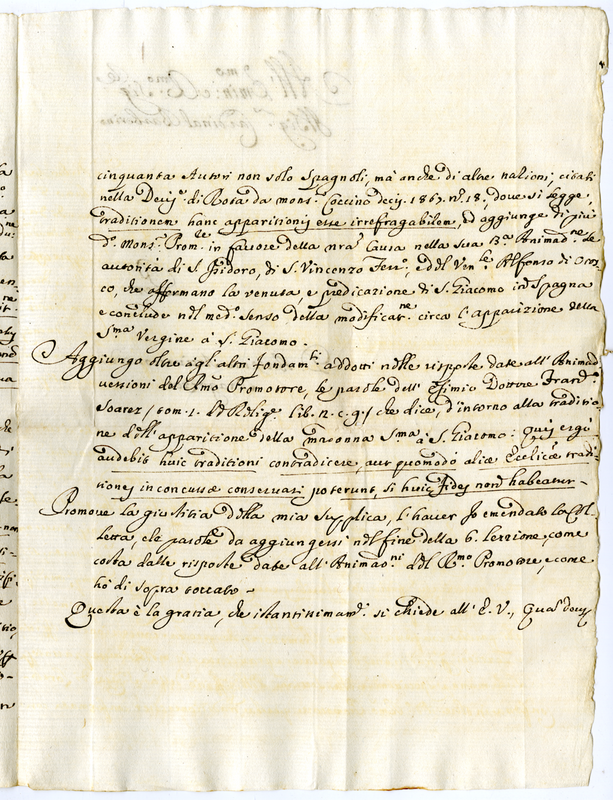 cinquanta Autori non solo Spagnoli, mà anche di altre nationi, citati
nella Decis.e di Rota da mons.r Coccino decis. 1867. n.o 18, dove si legge,
traditionem hanc apparitionis esse irrefragabilem, ed aggiunge di più
d.o Mons.r Prom.re in favore della nra Causa nella sua 13.a Animad.ne le
autorità di S. Isidoro, di S. Vincenzo Ferr.o, e del Ven.le Alfonso di Oroz
co, che affermano la venuta, e predicazione di S. Giacomo in Spagna
e conclude nel med.o senso della modificat.ne circa l'apparizione della
S.ma Vergine a S. Giacomo.
Aggiungo oltre agl'altri fondam.ti addotti nelle risposte date all'Animad
versioni del Rmo Promotore, le parole dell'Eximio Dottore Fran.co
Soarez / tom. 1. de Relig.e lib. n. c. 9. / che dice, d'intorno alla traditio
ne dell'apparitione della madonna S.ma à S. Giacomo: quis ergò
audebit huic traditioni contradicere, aut quomodò aliæ Ecclicæ tradi-
tiones inconcussæ conservari poterunt, si huic fides non habeatur-
Promove la giustitia della mia supplica, l'haver Io emendato la Col-
letta, e le parole da aggiungersi nel fine della 6. Lezzione, come
costa dalle risposte date all'Animad.ni del R.mo Promotore, e come
hò di sopra toccato-
Questa è la gratia, che istantissimam.te si chiede all'E. V., Quas Deus